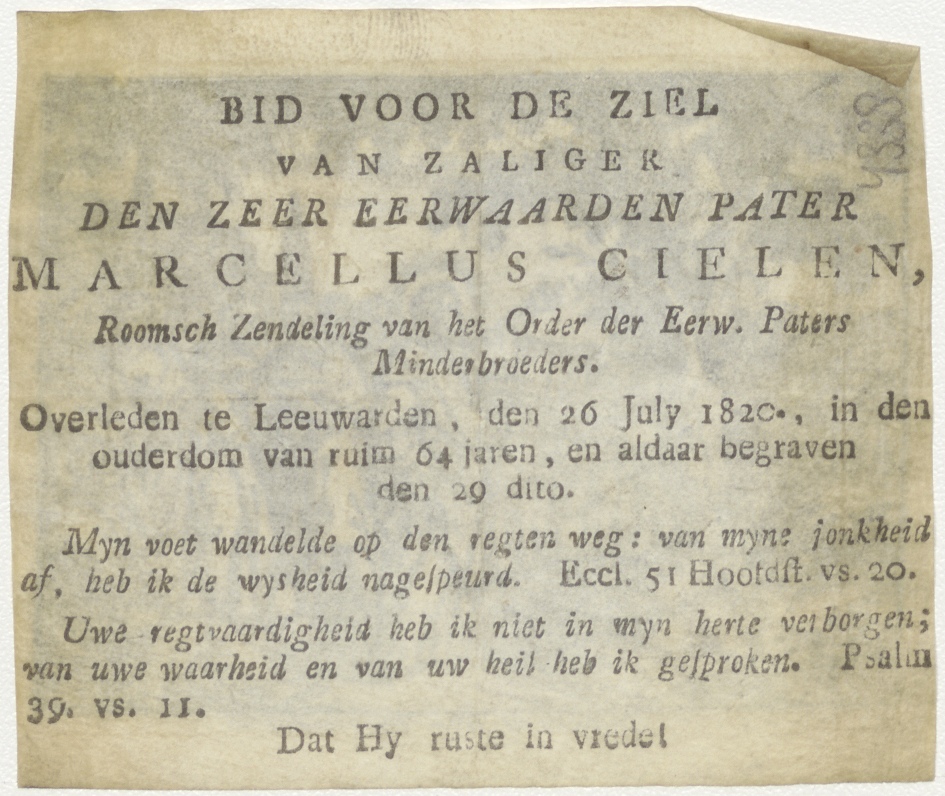 BID VOOR DE ZIEL
VAN ZALIGER
DEN ZEER EERWAARDEN PATER
MARCELLUS CIELEN,
Roomsch Zendeling van het Order der Eerw. Paters
Minderbroeders.
Overleden te Leeuwarden, den 26 July 1820., in den
ouderdom van ruim 64 jaren, en aldaar begraven
den 29 dito.
Myn voet wandelde op den regten weg: van myne jonkheid
af, heb ik de wysheid nageſpeurd. Eccl. 51 Hoofdſt. vs. 20.
Uwe regtvaardigheid heb ik niet in myn herte verborgen;
van uwe waarheid en van uw heil heb ik geſproken. Psalm
39. vs. 11.
Dat Hy ruste in vrede!